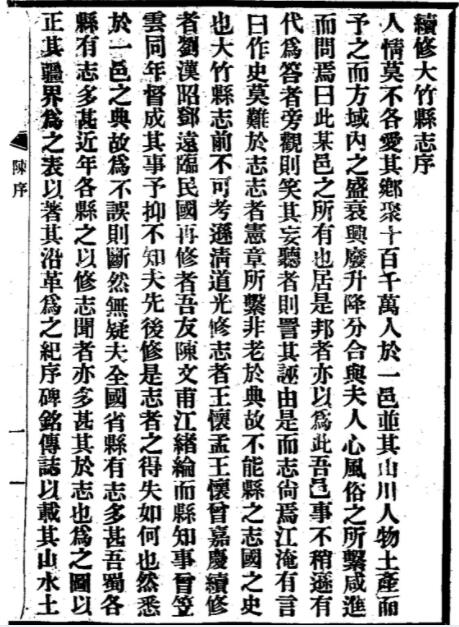 續修大竹縣志序
人情莫不各愛其鄉聚十百千萬人於一邑並其山川人物土產而
予之而方域內之盛衰興廢升降分合與夫人心風俗之所繫咸進
而問焉曰此某邑之所有也居是邦者亦以為此吾邑事不稍遜有
代為答者旁觀則笑其妄聽者則詈其誣由是而志尚焉江淹有言
曰作史莫難於志志者憲章所繫非老於典故不能縣之志國之史
也大竹縣志前不可考遜清道光修志者王懷孟王懷曾嘉慶續修
者劉漢昭鄧遠臨民國再修者吾友陳文甫江緒綸而縣知事曾笠
雲同年督成其事予抑不知夫先後修是志者之得失如何也然悉
於一邑之典故為不誤則斷然無疑夫全國省縣有志多甚吾蜀各
縣有志多甚近年各縣之以修志聞者亦多甚其於志也為之圖以
正其疆界為之表以著其沿革為之紀序碑銘傳誌以載其山水土
陳序
一